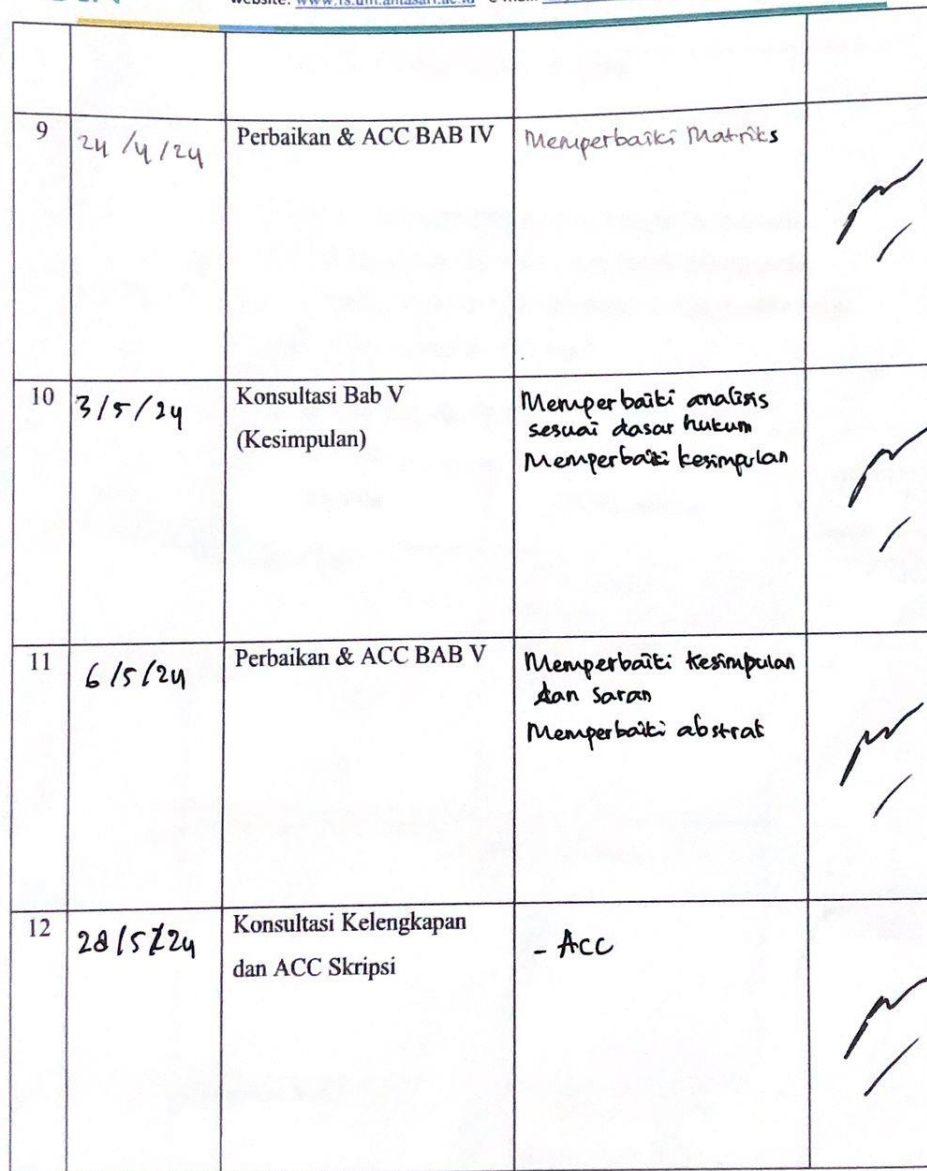 website: www.fs.uin.antasari.ac.id
9
24/4/24
Perbaikan & ACC BAB IV
Memperbaiki Matriks
10
3/5/24
Konsultasi Bab V
(Kesimpulan)
Memperbaiki analisis
sesuai dasar hukum
Memperbaiki kesimpulan
11
6/5/24
Perbaikan & ACC BAB V
Memperbaiki kesimpulan
dan saran
Memperbaiki abstrak
12
28/5/24
Konsultasi Kelengkapan
dan ACC Skripsi
- Acc